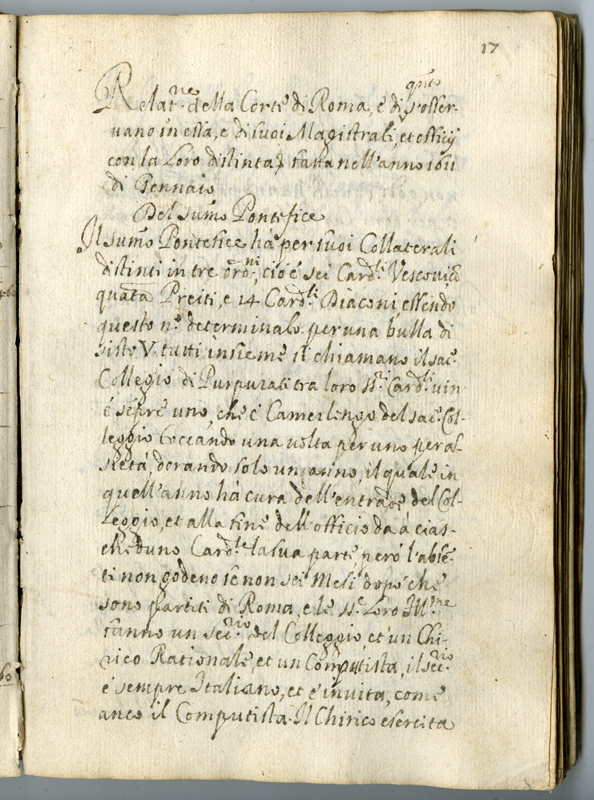 17
Relat.ne della Corte di Roma, e di qnto s'osser-
uano in essa, e di suoi Magistrati, et officij
con la Loro distinta fatta nell'anno 1611
di Gennaio
Del sumo Pontefice
Il sumo Pontefice ha per suoi Collaterali
distinti in tre ord.ni, cioè sei Card.li Vescovi, e
quata Preiti, e 14 Card.li Diaconi, essendo
questo n.o determinato per una bulla di
Sisto V. tutti insieme si chiamano il sac.
Collegio di Purpurati tra loro SS.ri Card.li vin
è sepre uno che è Camerlengo del sac. Col-
leggio toccando una volta per uno per as-
sieta, dorando solo un anno, il quale in
quell'anno hà cura dell'entrade del Col-
leggio, et alla fine dell'officio da a cias-
cheduno Card.le la sua parte però l'abse-
ti non godeno se non sei Mesi dopò che
sono partiti di Roma, e le SS.e Loro Ill.me
fanno un sec.rio del Colleggio et un Chi-
rico Rationale, et un Computista, il sec.rio
è sempre Italiano, et è in vita, come
anco il Computista. Il Chirico esercita